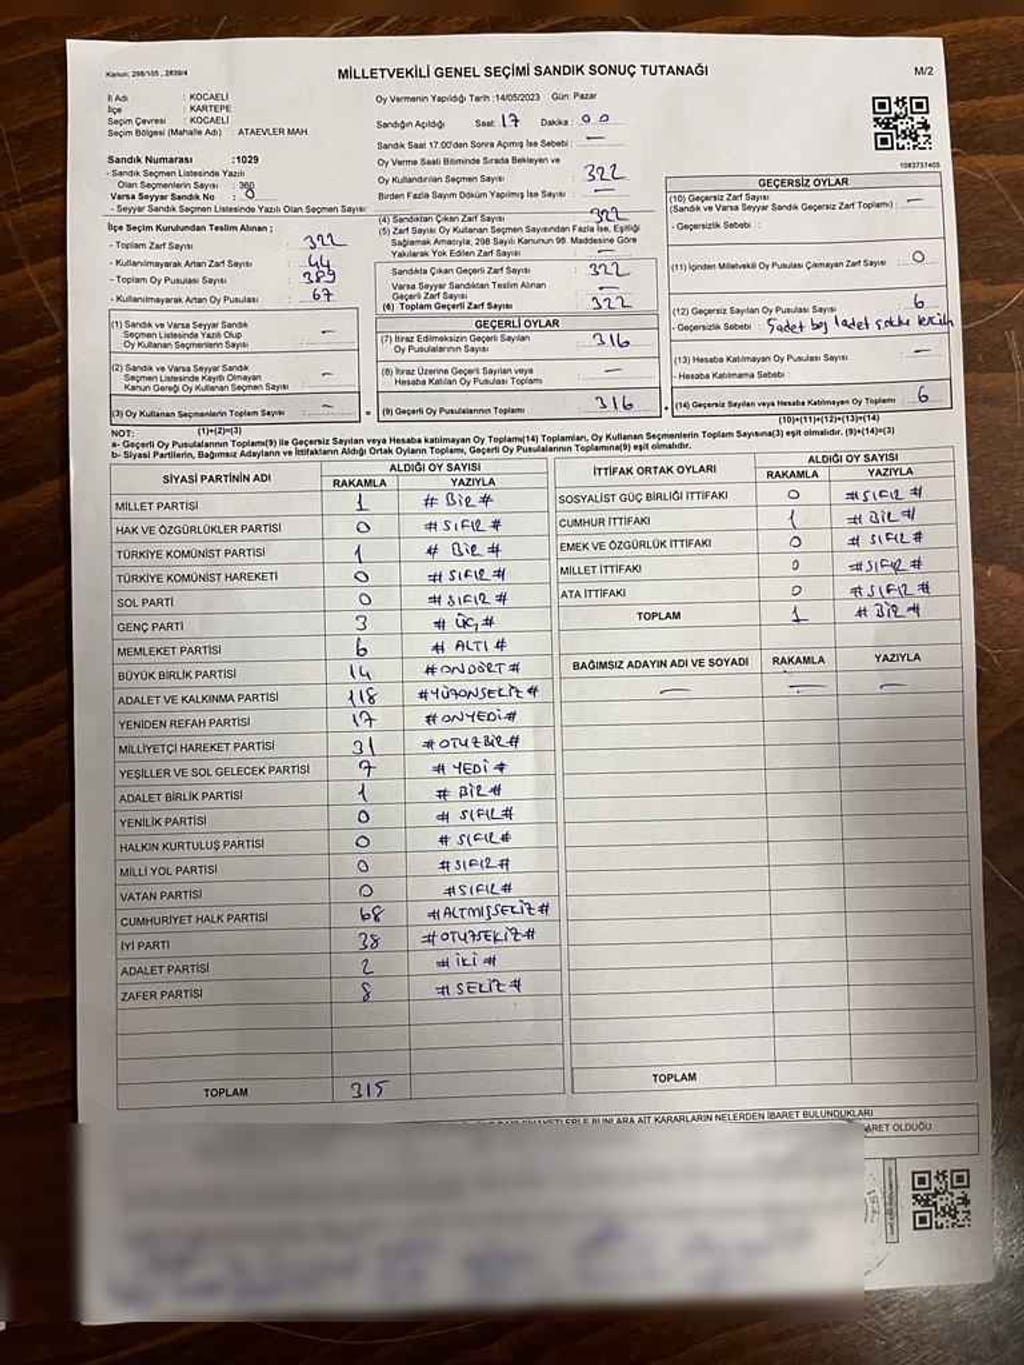 Kanun: 298/105 , 2839/4
MİLLETVEKİLİ GENEL SEÇİMİ SANDIK SONUÇ TUTANAĞI
M/2
İl Adı : KOCAELİ
İlçe : KARTEPE
Seçim Çevresi : KOCAELİ
Seçim Bölgesi (Mahalle Adı) : ATAEVLER MAH.
Sandık Numarası :1029
- Sandık Seçmen Listesinde Yazılı
Olan Seçmenlerin Sayısı : 360
Varsa Seyyar Sandık No : 0
- Seyyar Sandık Seçmen Listesinde Yazılı Olan Seçmen Sayısı
İlçe Seçim Kurulundan Teslim Alınan ;
- Toplam Zarf Sayısı : 322
- Kullanılmayarak Artan Zarf Sayısı : 44
- Toplam Oy Pusulası Sayısı : 389
- Kullanılmayarak Artan Oy Pusulası : 67
(1) Sandık ve Varsa Seyyar Sandık
Seçmen Listesinde Yazılı Olup
Oy Kullanan Seçmenlerin Sayısı : —
(2) Sandık ve Varsa Seyyar Sandık
Seçmen Listesinde Kayıtlı Olmayan
Kanun Gereği Oy Kullanan Seçmen Sayısı : —
(3) Oy Kullanan Seçmenlerin Toplam Sayısı : —
(1)+(2)=(3)
Oy Vermenin Yapıldığı Tarih :14/05/2023 Gün: Pazar
Sandığın Açıldığı Saat: 17 Dakika : 00
Sandık Saat 17:00'den Sonra Açılmış İse Sebebi : —
Oy Verme Saati Bitiminde Sırada Bekleyen ve
Oy Kullandırılan Seçmen Sayısı : 322
Birden Fazla Sayım Döküm Yapılmış İse Sayısı : —
(4) Sandıktan Çıkan Zarf Sayısı : 322
(5) Zarf Sayısı Oy Kullanan Seçmen Sayısından Fazla İse, Eşitliği
Sağlamak Amacıyla, 298 Sayılı Kanunun 98. Maddesine Göre
Yakılarak Yok Edilen Zarf Sayısı : —
Sandıkta Çıkan Geçerli Zarf Sayısı : 322
Varsa Seyyar Sandıktan Teslim Alınan
Geçerli Zarf Sayısı : —
(6) Toplam Geçerli Zarf Sayısı : 322
GEÇERLİ OYLAR
(7) İtiraz Edilmeksizin Geçerli Sayılan
Oy Pusulalarının Sayısı : 316
(8) İtiraz Üzerine Geçerli Sayılan veya
Hesaba Katılan Oy Pusulası Toplamı : —
= (9) Geçerli Oy Pusulalarının Toplamı : 316
1083737405
GEÇERSİZ OYLAR
(10) Geçersiz Zarf Sayısı
(Sandık ve Varsa Seyyar Sandık Geçersiz Zarf Toplamı) : —
- Geçersizlik Sebebi :
(11) İçinden Milletvekili Oy Pusulası Çıkmayan Zarf Sayısı : 0
(12) Geçersiz Sayılan Oy Pusulası Sayısı : 6
- Geçersizlik Sebebi : 5 adet boş 1 adet
(13) Hesaba Katılmayan Oy Pusulası Sayısı : —
- Hesaba Katılmama Sebebi :
(14) Geçersiz Sayılan veya Hesaba Katılmayan Oy Toplamı : 6
(10)+(11)+(12)+(13)=(14)
NOT:
a- Geçerli Oy Pusulalarının Toplamı(9) ile Geçersiz Sayılan veya Hesaba katılmayan Oy Toplamı(14) Toplamları, Oy Kullanan Seçmenlerin Toplam Sayısına(3) eşit olmalıdır. (9)+(14)=(3)
b- Siyasi Partilerin, Bağımsız Adayların ve İttifakların Aldığı Ortak Oyların Toplamı, Geçerli Oy Pusulalarının Toplamına(9) eşit olmalıdır.
SİYASİ PARTİNİN ADI ALDIĞI OY SAYISI
RAKAMLA YAZIYLA
MİLLET PARTİSİ 1 # BİR #
HAK VE ÖZGÜRLÜKLER PARTİSİ 0 # SIFIR #
TÜRKİYE KOMÜNİST PARTİSİ 1 # BİR #
TÜRKİYE KOMÜNİST HAREKETİ 0 # SIFIR #
SOL PARTİ 0 # SIFIR #
GENÇ PARTİ 3 # ÜÇ #
MEMLEKET PARTİSİ 6 # ALTI #
BÜYÜK BİRLİK PARTİSİ 14 # ONDÖRT #
ADALET VE KALKINMA PARTİSİ 118 # YÜZONSEKİZ #
YENİDEN REFAH PARTİSİ 17 # ONYEDİ #
MİLLİYETÇİ HAREKET PARTİSİ 31 # OTUZBİR #
YEŞİLLER VE SOL GELECEK PARTİSİ 7 # YEDİ #
ADALET BİRLİK PARTİSİ 1 # BİR #
YENİLİK PARTİSİ 0 # SIFIR #
HALKIN KURTULUŞ PARTİSİ 0 # SIFIR #
MİLLİ YOL PARTİSİ 0 # SIFIR #
VATAN PARTİSİ 0 # SIFIR #
CUMHURİYET HALK PARTİSİ 68 # ALTMIŞSEKİZ #
İYİ PARTİ 38 # OTUZSEKİZ #
ADALET PARTİSİ 2 # İKİ #
ZAFER PARTİSİ 8 # SEKİZ #
TOPLAM 315
İTTİFAK ORTAK OYLARI ALDIĞI OY SAYISI
RAKAMLA YAZIYLA
SOSYALİST GÜÇ BİRLİĞİ İTTİFAKI 0 # SIFIR #
CUMHUR İTTİFAKI 1 # BİR #
EMEK VE ÖZGÜRLÜK İTTİFAKI 0 # SIFIR #
MİLLET İTTİFAKI 0 # SIFIR #
ATA İTTİFAKI 0 # SIFIR #
TOPLAM 1 # BİR #
BAĞIMSIZ ADAYIN ADI VE SOYADI RAKAMLA YAZIYLA
— — —
TOPLAM
BUNLARA AİT KARARLARIN NELERDEN İBARET BULUNDUKLARI
OLDUĞU